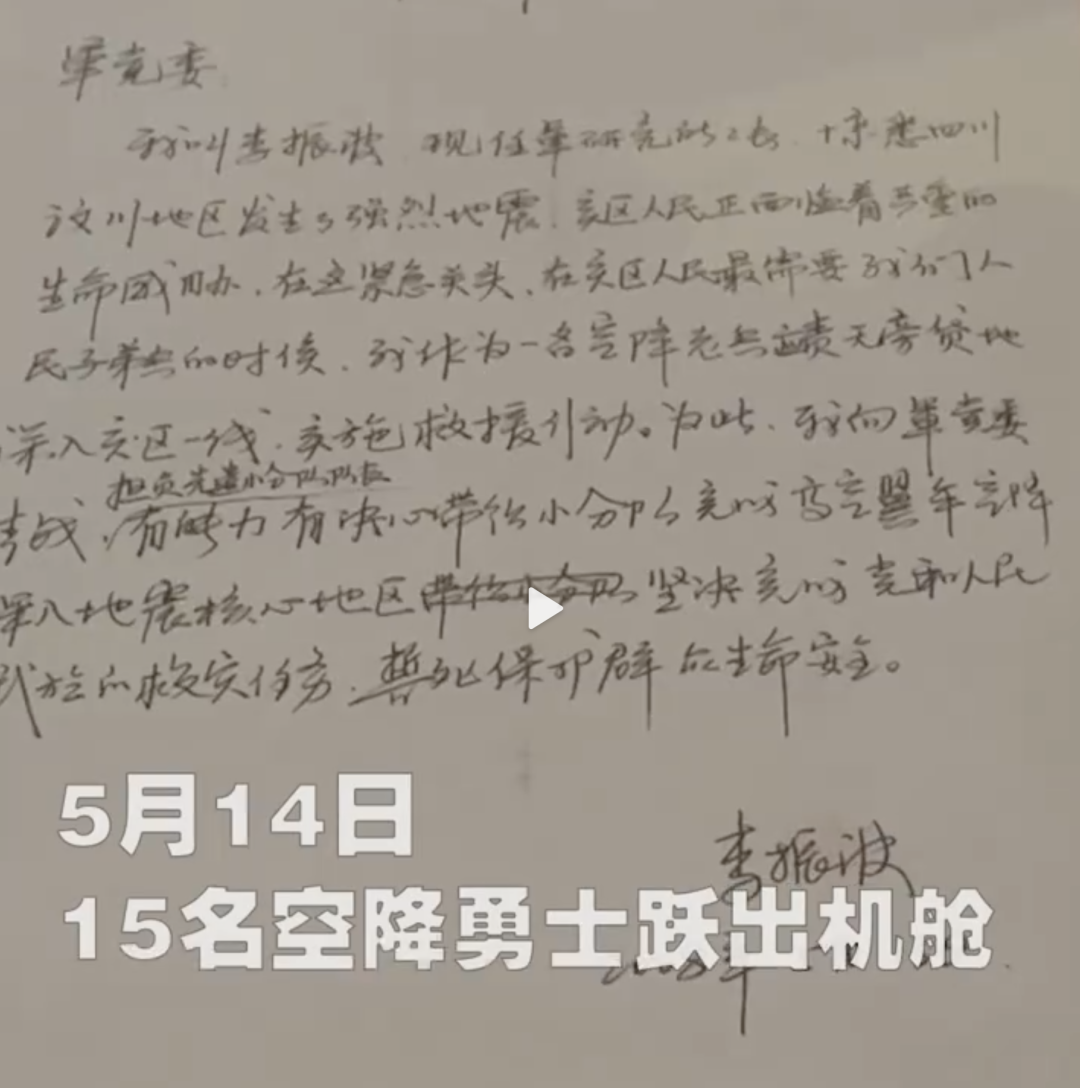 军党委
我叫李振波 现任军研究所所长. 惊悉四川
汶川地区发生了强烈地震. 灾区人民正面临着严重的
生命威胁. 在这紧急关头. 在灾区人民最需要我们人
民子弟兵的时候. 我作为一名空降老兵责无旁贷地
深入灾区一线. 实施救援行动。为此. 我向军党委
担负先遣小分队队长
请战. 有能力有决心带领小分队克服高空翼伞空降
深入地震核心地区 坚决完成党和人民
的救灾任务. 誓死保护群众生命安全。
李振波
2008年
5月14日
15名空降勇士跃出机舱